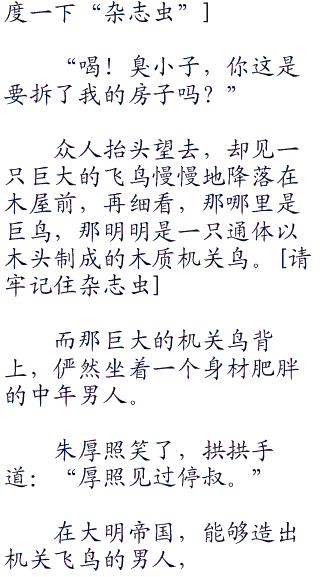 度一下“杂志虫”]
“喝！臭小子，你这是
要拆了我的房子吗？”
众人抬头望去，却见一
只巨大的飞鸟慢慢地降落在
木屋前，再细看，那哪里是
巨鸟，那明明是一只通体以
木头制成的木质机关鸟。[请
牢记住杂志虫]
而那巨大的机关鸟背
上，俨然坐着一个身材肥胖
的中年男人。
朱厚照笑了，拱拱手
道：“厚照见过停叔。”
在大明帝国，能够造出
机关飞鸟的男人，